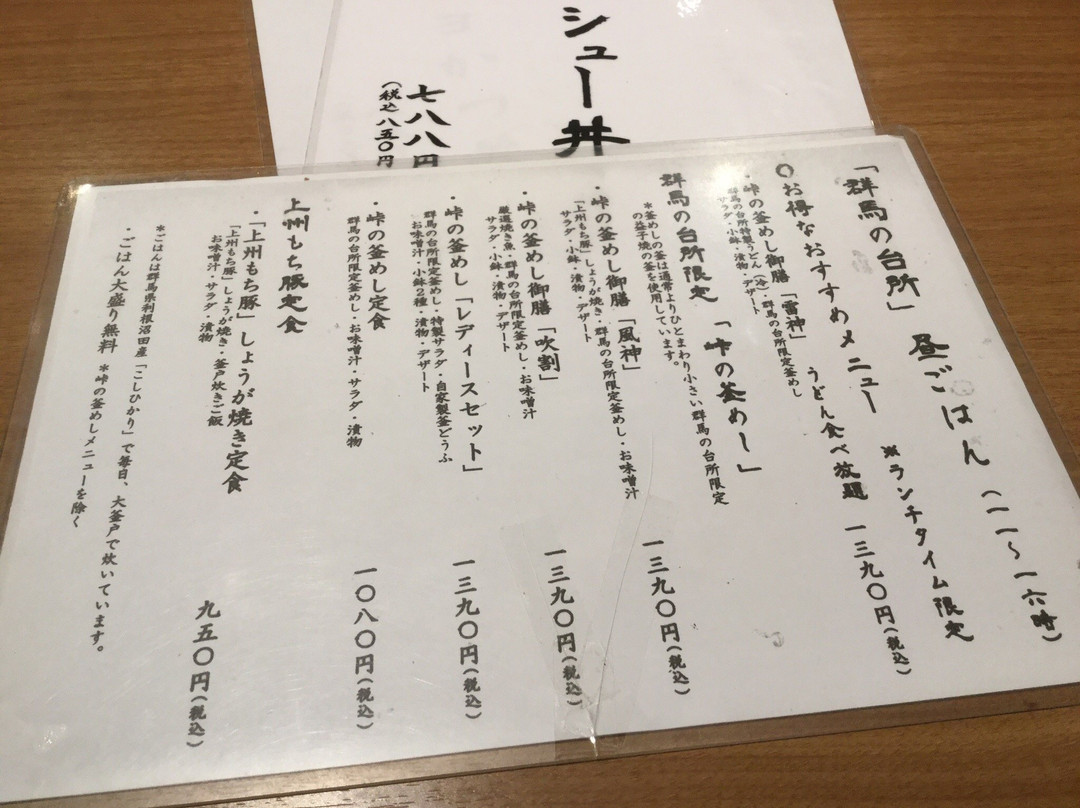 シュー丼
七八八円
(税込八五〇円
「群馬の台所」 昼ごはん (一一〜一六時)
※ランチタイム限定
〇お得なおすすめメニュー
うどん食べ放題 一三九〇円(税込)
・峠の釜めし御膳「雷神」
群馬の台所特製うどん(冷)・群馬の台所限定釜めし
サラダ・小鉢・漬物・デザート
群馬の台所限定 「峠の釜めし」
*釜めしの釜は通常よりひとまわり小さい群馬の台所限定
の益子焼の釜を使用しています。
・峠の釜めし御膳「風神」 一三九〇円(税込)
「上州もち豚」しょうが焼き・群馬の台所限定釜めし・お味噌汁
サラダ・小鉢・漬物・デザート
・峠の釜めし御膳「吹割」 一三九〇円(税込)
厳選焼き魚・群馬の台所限定釜めし・お味噌汁
サラダ・小鉢・漬物・デザート
・峠の釜めし「レディースセット」 一三九〇円(税込)
群馬の台所限定釜めし・特製サラダ・自家製釜どうふ
お味噌汁・小鉢2種・漬物・デザート
・峠の釜めし定食 一〇八〇円(税込)
群馬の台所限定釜めし・お味噌汁・サラダ・漬物
上州もち豚定食
・「上州もち豚」しょうが焼き定食 九五〇円(税込)
「上州もち豚」しょうが焼き・釜戸炊きご飯
お味噌汁・サラダ・漬物
・ごはん大盛り無料 *峠の釜めしメニューを除く
*ごはんは群馬県利根沼田産「こしひかり」で毎日、大釜戸で炊いています。